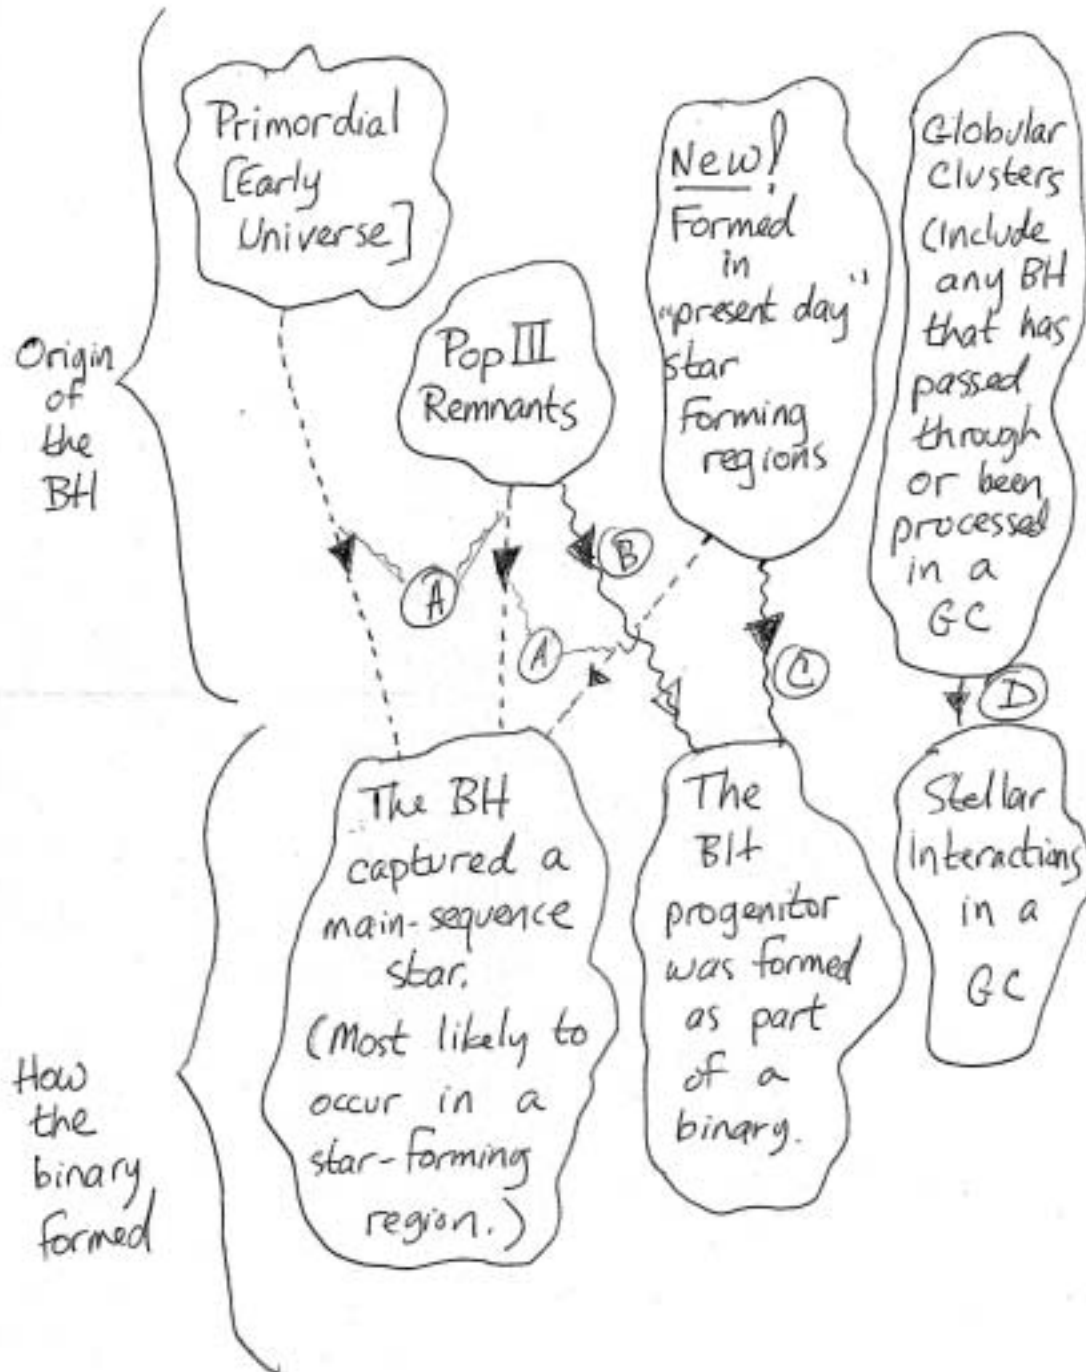 Origin
of
the
BH
Primordial
[Early
Universe]
Pop III
Remnants
New!
Formed
in
"present day"
star
forming
regions
Globular
Clusters
(Include
any BH
that has
passed
through
or been
processed
in a
GC
A
B
A
C
D
How
the
binary
formed
The BH
captured a
main-sequence
star.
(Most likely to
occur in a
star-forming
region.)
The
BH
progenitor
was formed
as part
of a
binary.
Stellar
Interactions
in a
GC